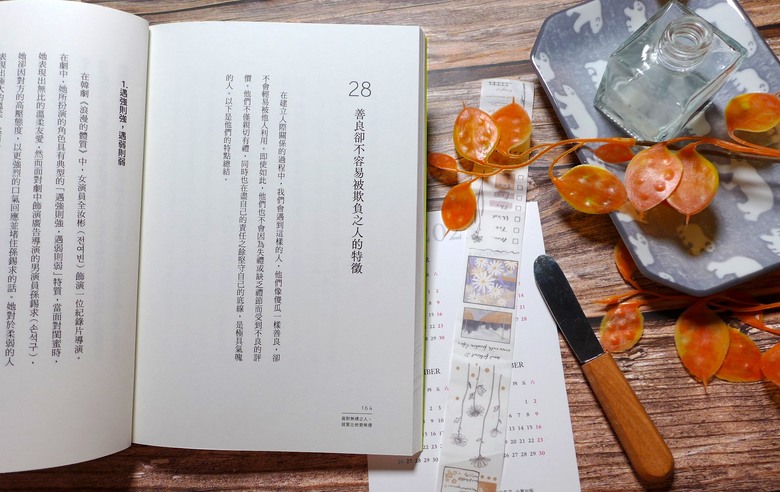 28
善良卻不容易被欺負之人的特徵
在建立人際關係的過程中，我們會遇到這樣的人，他們像傻瓜一樣善良，卻
不會輕易被他人利用。即使如此，他們也不會因為失禮或缺乏禮節而受到不良的評
價。他們不僅親切有禮，同時也在盡自己的責任之餘堅守自己的底線，是極具氣魄
的人。以下是他們的特點總結。
169
1.遇強則強，遇弱則弱
在韓劇《浪漫的體質》中，女演員全汝彬（전여빈）飾演一位紀錄片導演。
在劇中，她所扮演的角色具有典型的「遇強則強，遇弱則弱」特質，當面對閨蜜時，
她表現出無比的溫柔友愛，然而面對劇中飾演廣告導演的男演員孫錫求（손석구），
她卻因對方的高壓態度，以更強烈的口氣回應並堵住孫錫求的話。她對於柔弱的人